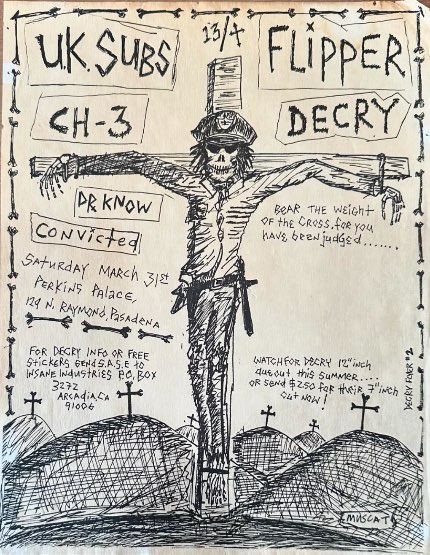 U.K. SUBS
13/4
FLIPPER
CH-3
DECRY
DR. KNOW
CONVICTED
SATURDAY MARCH 31st
PERKINS PALACE,
129 N. RAYMOND, PASADENA
BEAR THE WEIGHT
OF THE CROSS, for you
have been judged.......
FOR DECRY INFO OR FREE
STICKERS SEND S.A.S.E TO
INSANE INDUSTRIES P.O. BOX
3272
ARCADIA, CA
91006
WATCH FOR DECRY 12" inch
due out this summer....
or send $2.50 for their 7" inch
out now!
DECRY FLYER #2
MUSCAT